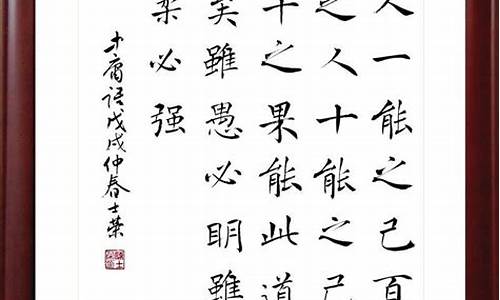 人一能之己百
之人十能之己
千之果能此道
矣雖愚必明雖
柔必强
中庸語戊戌仲春士榮